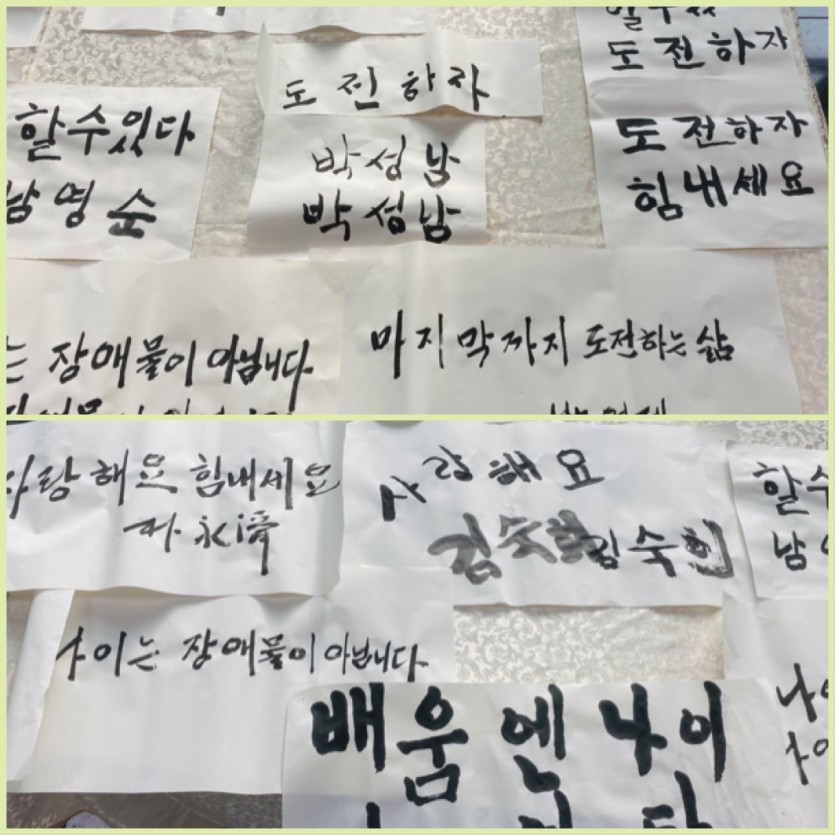 도전하자
도전하자
할수있다
박성남
도전하자
남영순
박성남
힘내세요
는 장애물이 아닙니다
마지막까지 도전하는 삶
사랑해요 힘내세요
사랑해요
할수
김숙 김숙현
남
나이는 장애물이 아닙니다
배움엔 나이